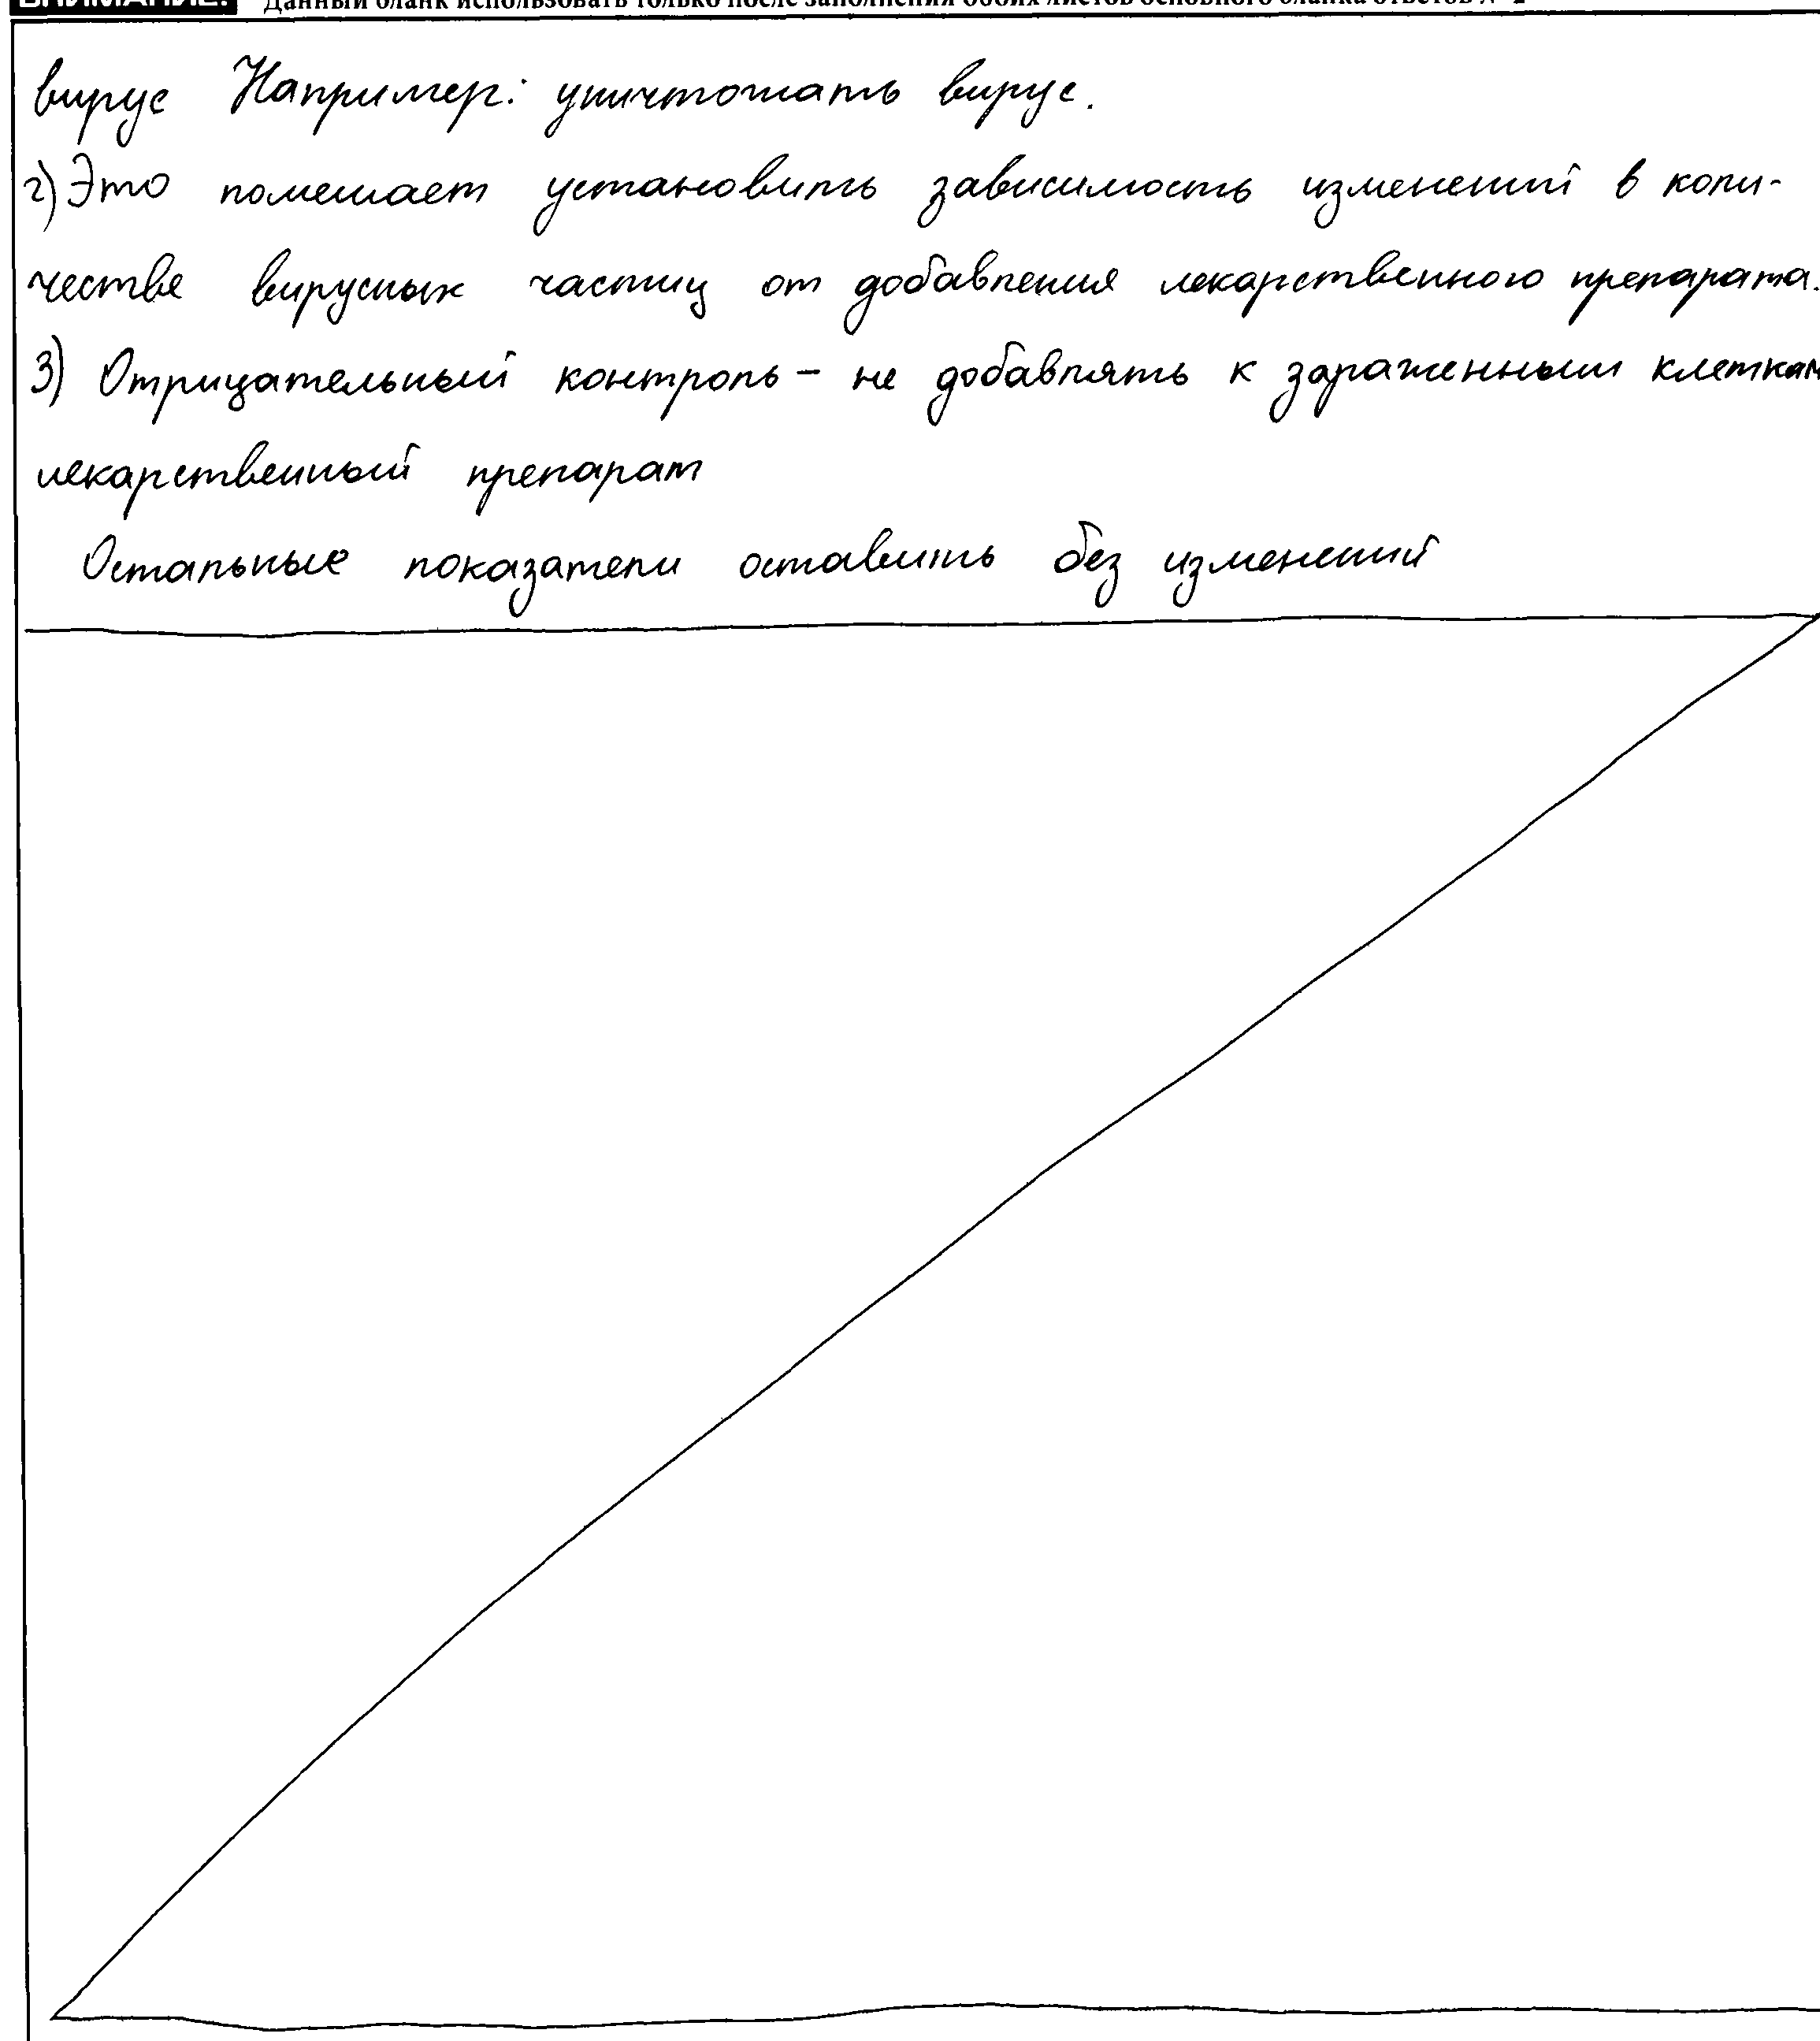 ВНИМАНИЕ! Данный бланк использовать только после заполнения обоих листов основного бланка ответов № 2
вирус Например: уничтожать вирус.
2) Это помешает установить зависимость изменений в коли-
честве вирусных частиц от добавления лекарственного препарата.
3) Отрицательный контроль – не добавлять к зараженным клеткам
лекарственный препарат
Остальные показатели оставить без изменений